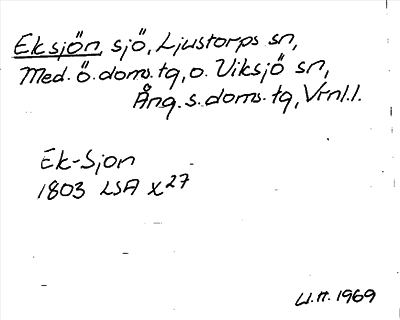 Eksjön, sjö, Ljustorps sn,
Med. ö. doms. tg, o. Viksjö sn,
Ång. s. doms. tg, Vrnl.l.
Ek-Sjon
1803 LSA X27
U.H. 1969